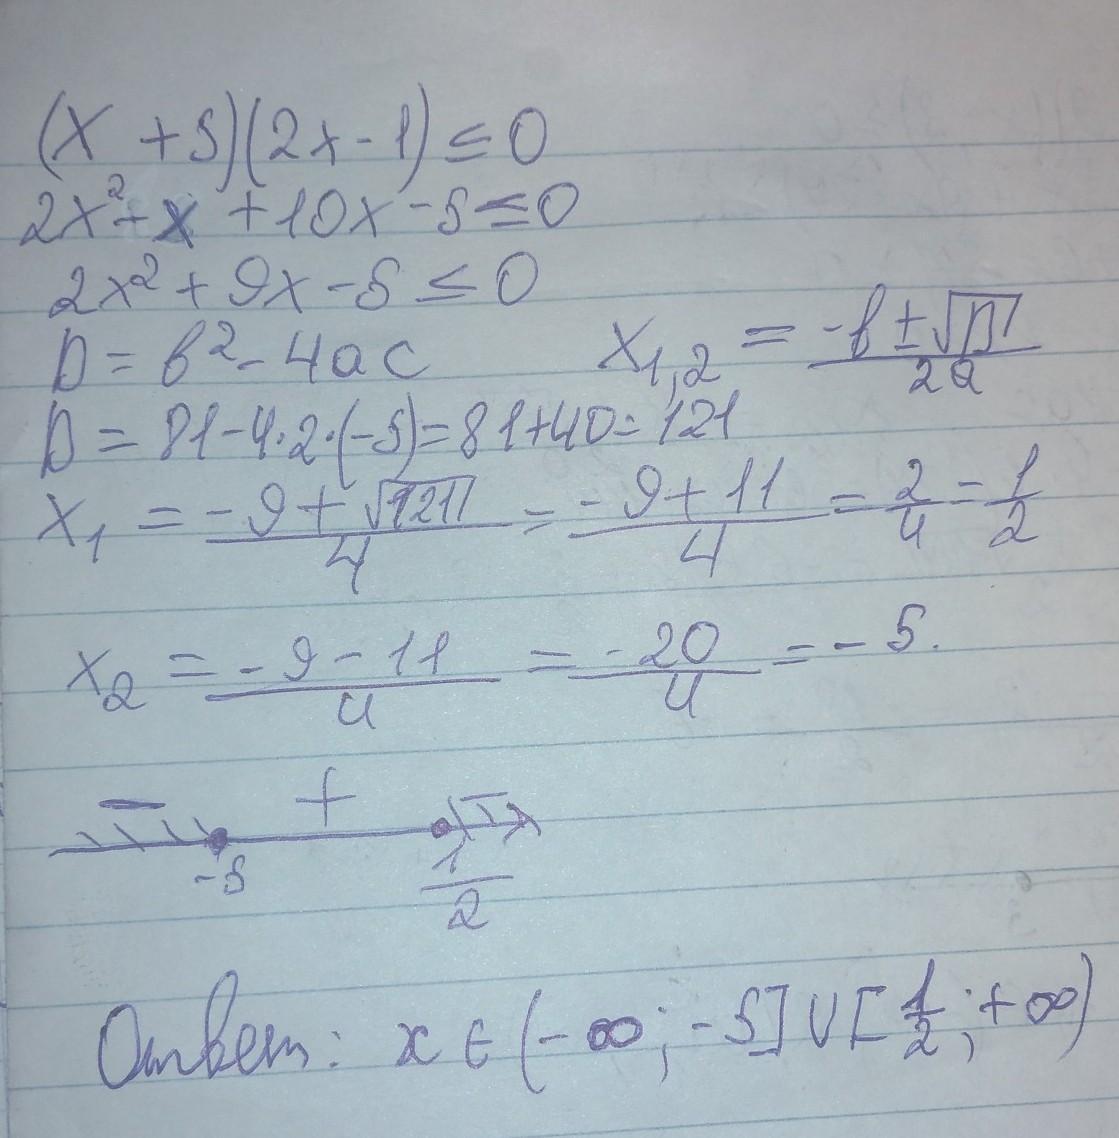 (x + 5)(2x - 1) ≤ 0
2x² - x + 10x - 5 ≤ 0
2x² + 9x - 5 ≤ 0
D = b² - 4ac
x₁,₂ = (-b ± √D)/2a
D = 81 - 4·2·(-5) = 81 + 40 = 121
x₁ = (-9 + √121)/4 = (-9 + 11)/4 = 2/4 = 1/2
x₂ = (-9 - 11)/4 = -20/4 = -5.
- + -
-5 1/2
Ответ: x ∈ (-∞; -5] ∪ [1/2; +∞)